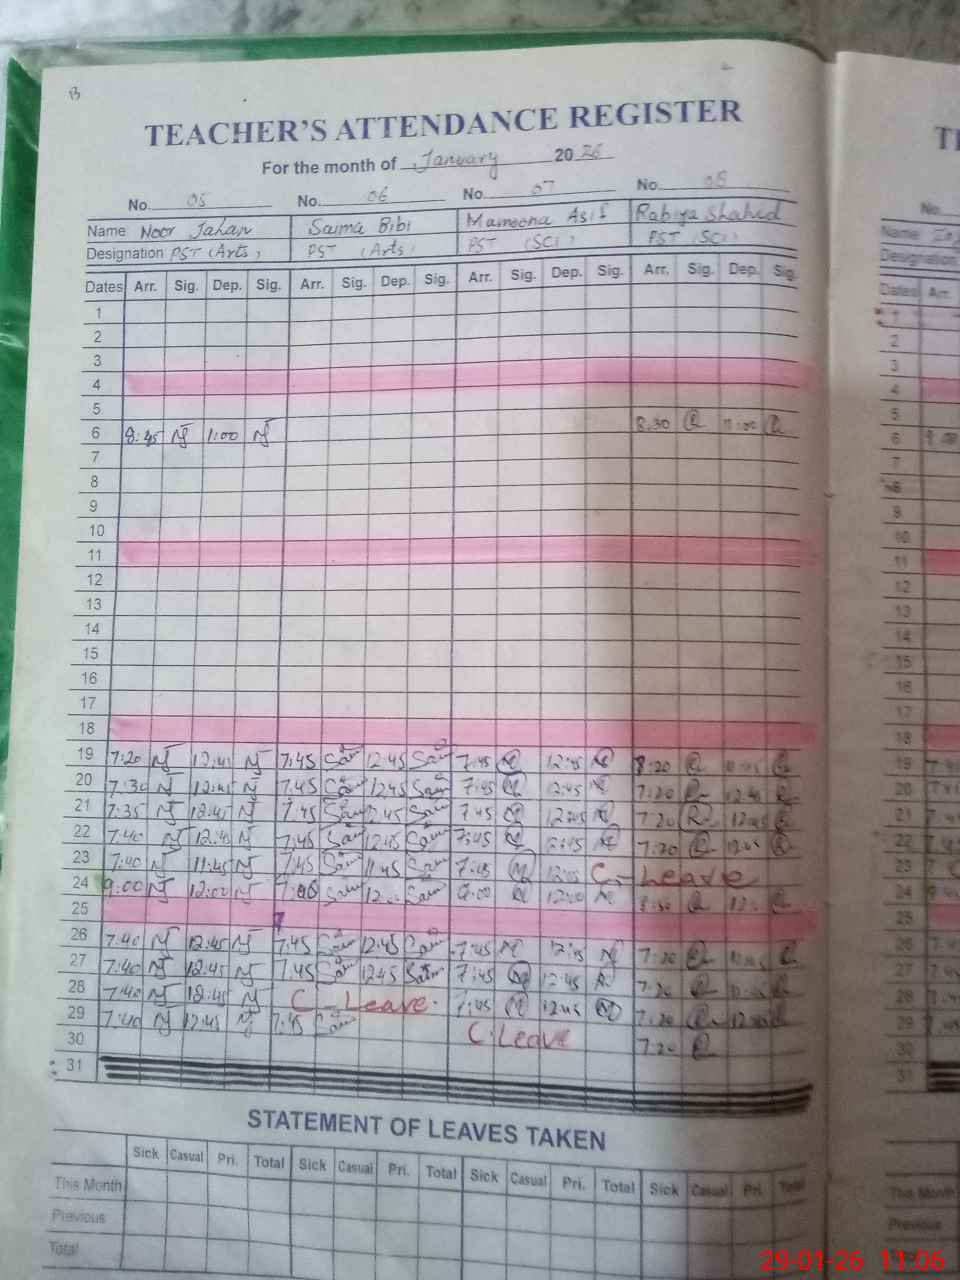 B
TEACHER'S ATTENDANCE REGISTER
For the month of January 2026
No. 05 No. 06 No. 07 No. 08
Name Noor Jahan Saima Bibi Mamoona Asif Rabiya Shahid
Designation PST (Arts) PST (Arts) PST (Sci) PST (Sci)
Dates Arr. Sig. Dep. Sig. Arr. Sig. Dep. Sig. Arr. Sig. Dep. Sig. Arr. Sig. Dep. Sig.
1
2
3
4
5
6 8:45 NJ 1:00 NJ 8:30 R 1:00 R
7
8
9
10
11
12
13
14
15
16
17
18
19 7:20 NJ 12:45 NJ 7:45 Sam 12:45 Sam 7:45 M 12:45 M 8:20 R R
20 7:30 NJ 12:45 NJ 7:45 Sam 12:45 Sam 7:45 M 12:45 M 7:20 R 12:45 R
21 7:35 NJ 12:45 NJ 7:45 Sam 12:45 Sam 7:45 M 12:45 M 7:20 R 12:45 R
22 7:40 NJ 12:45 NJ 7:45 Sam 12:45 Sam 7:45 M 12:45 M 7:20 R 12:45 R
23 7:40 NJ 11:45 NJ 7:45 Sam 11:45 Sam 7:45 M C-Leave
24 9:00 NJ 12:00 NJ Sam Sam 9:00 M 12:00 M 8:30 R R
25
26 7:40 NJ 12:45 NJ 7:45 Sam 12:45 Sam 7:45 M 12:45 M 7:20 R R
27 7:40 NJ 12:45 NJ 7:45 Sam 12:45 Sam 7:45 M 12:45 M 7:20 R R
28 7:40 NJ 12:45 NJ C-Leave. 7:45 M 12:45 M 7:20 R R
29 7:40 NJ 12:45 NJ 7:45 Sam C.Leave 7:20 R
30
31
STATEMENT OF LEAVES TAKEN
Sick Casual Pri. Total Sick Casual Pri. Total Sick Casual Pri. Total Sick Casual Pri. Total
This Month
Previous
Total
No.
Name
Designation
Dates Arr.
1
2
3
4
5
6
7
8
9
10
11
12
13
14
15
16
17
18
19
20
21
22
23
24
25
26
27
28
29
30
31
This Month
Previous
29-01-26 11:06